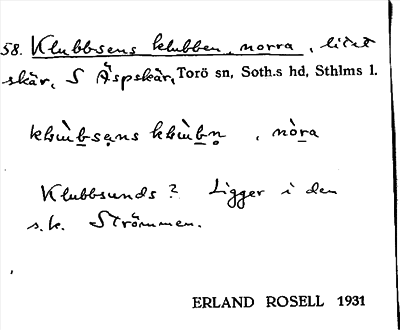 58. Klubbsens klubben, norra, litet
skär, S Äspskär, Torö sn, Soth.s hd, Sthlms l.
nò̱ra
Klubbsunds? Ligger i den
s.k. Strömmen.
ERLAND ROSELL 1931